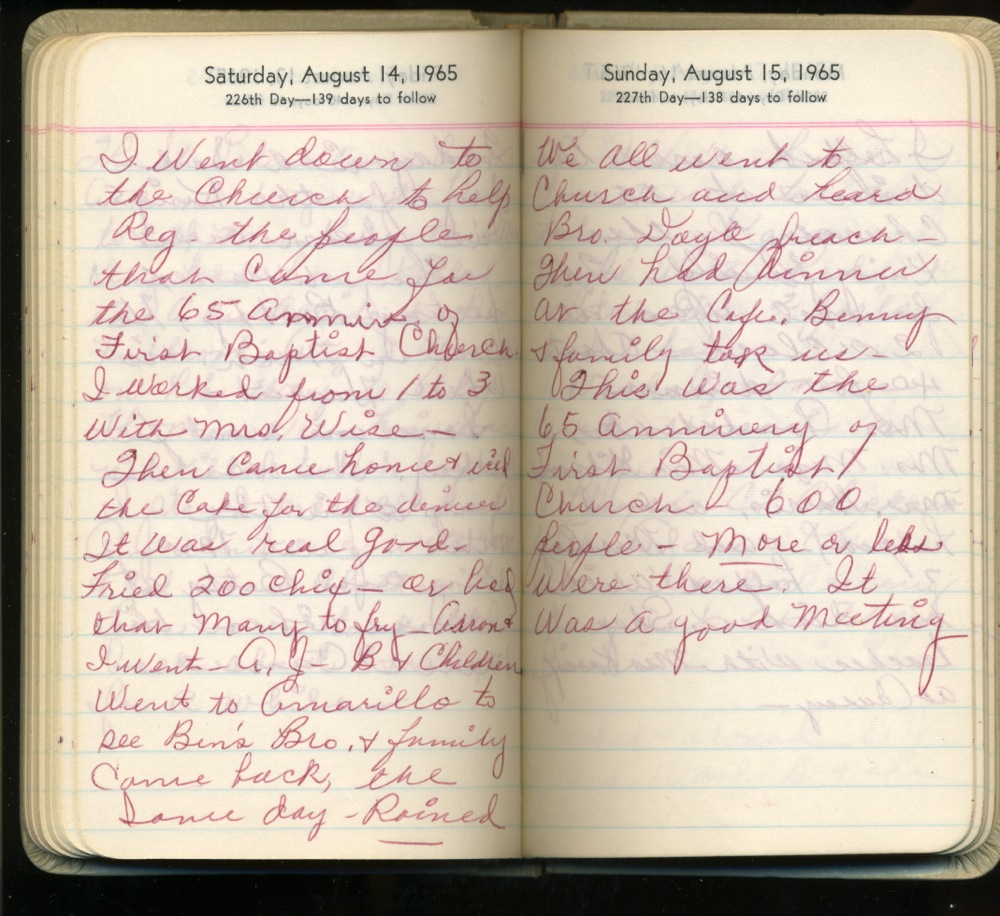 Saturday, August 14, 1965
226th Day—139 days to follow
I Went down to
the Church to help
Reg. the people
that Come for
the 65 Anniv of
First Baptist Church.
I worked from 1 to 3
With Mrs. Wise—
Then Came home & iced
the Cake for the dinner
It was real good—
Fried 200 Chix — or had
that Many to fry — Aaron &
I went — A, J — B & Children
Went to Amarillo to
see Ben's Bro. & family
Come back, the
Same day — Rained
Sunday, August 15, 1965
227th Day—138 days to follow
We all went to
Church and heard
Bro. Doyle preach —
Then had dinner
at the Cafe. Benny
& family took us —
This was the
65 Annivery of
First Baptist
Church — 600
people — More or less
Were there. It
Was a good Meeting